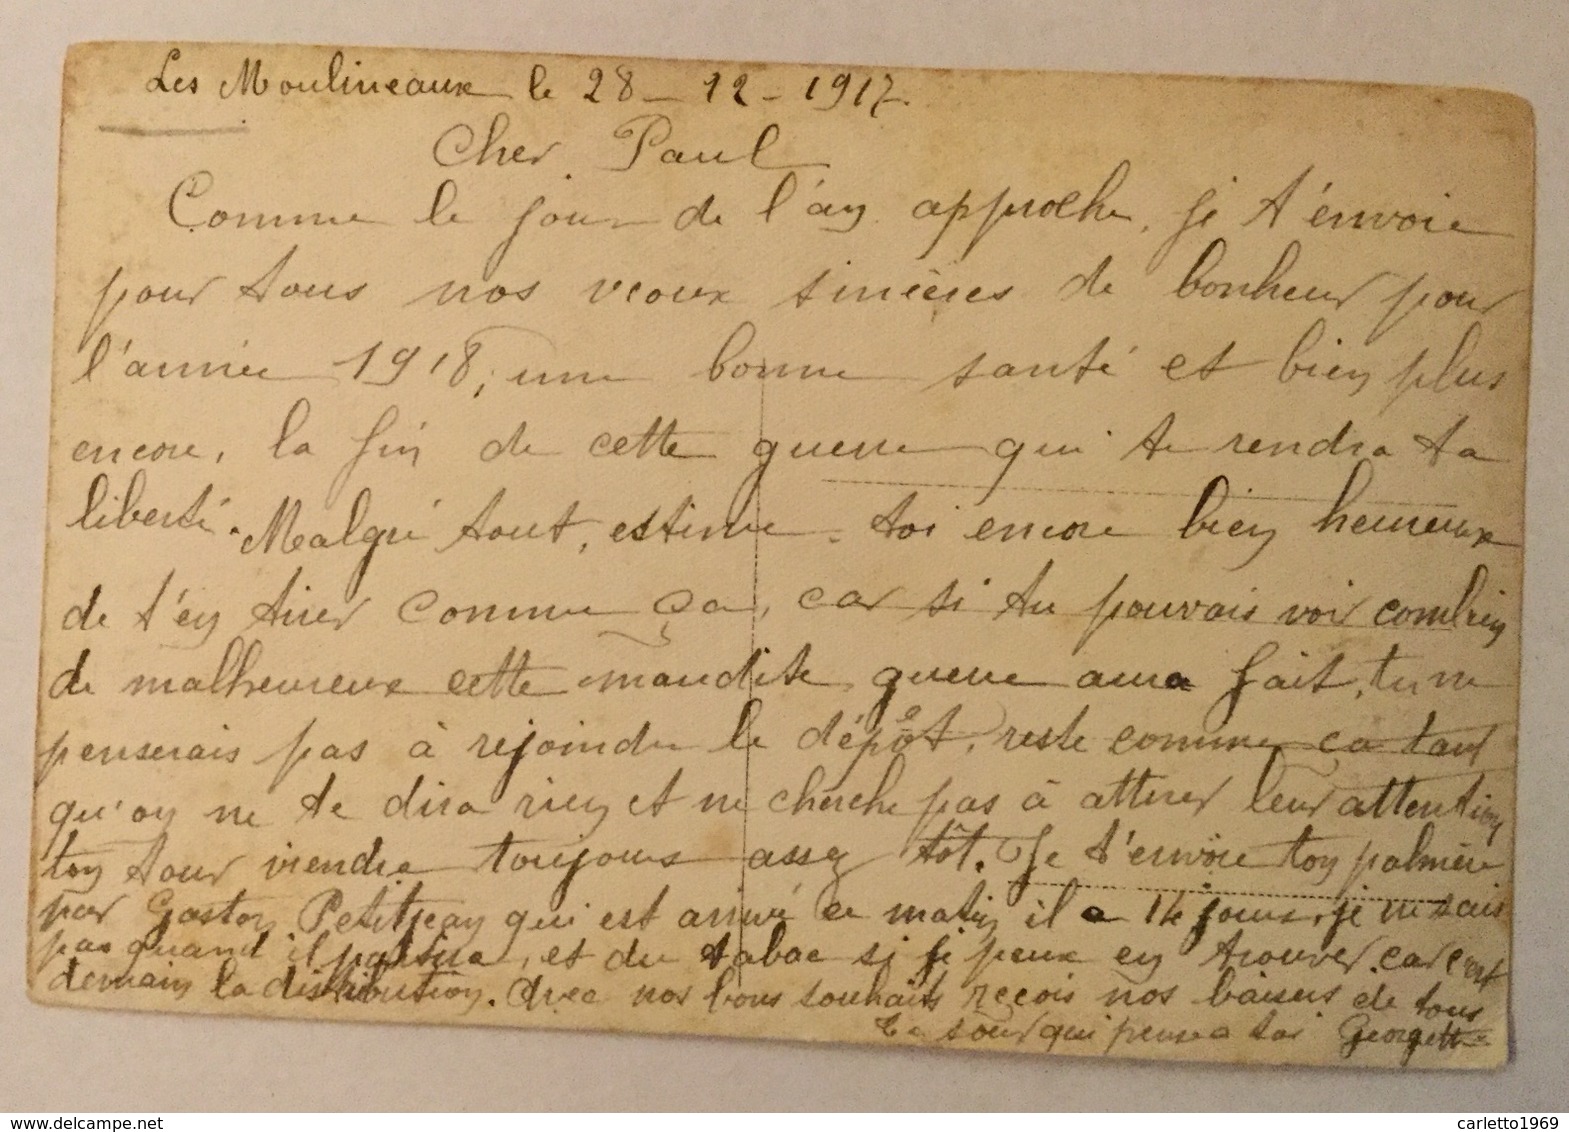 Les Moulineaux le 28 - 12 - 1917.
Cher Paul
Comme le jour de l'an approche, je t'envoie
pour tous nos veoux sincères de bonheur pour
l'année 1918, une bonne santé et bien plus
encore, la fin de cette guerre qui te rendra ta
liberté. Malgré tout, estime-toi encore bien heureux
de t'en tirer comme ça, car si tu pouvais voir combien
de malheureux cette maudite guerre aura fait, tu ne
penserais pas à rejoindre le dépôt, reste comme ça tant
qu'on ne te dira rien et ne cherche pas à attirer leur attention
ton tour viendra toujours assez tôt. Je t'envoie ton
par Gaston Petitjean qui est arrivé ce matin il a 14 jours, je ne sais
pas quand il partira, et du tabac si je peux en trouver car c'est
demain la distribution. Avec nos bons souhaits reçois nos baisers de tous
Ta sœur qui pense a toi Georgette
delcampe.net
carletto1969